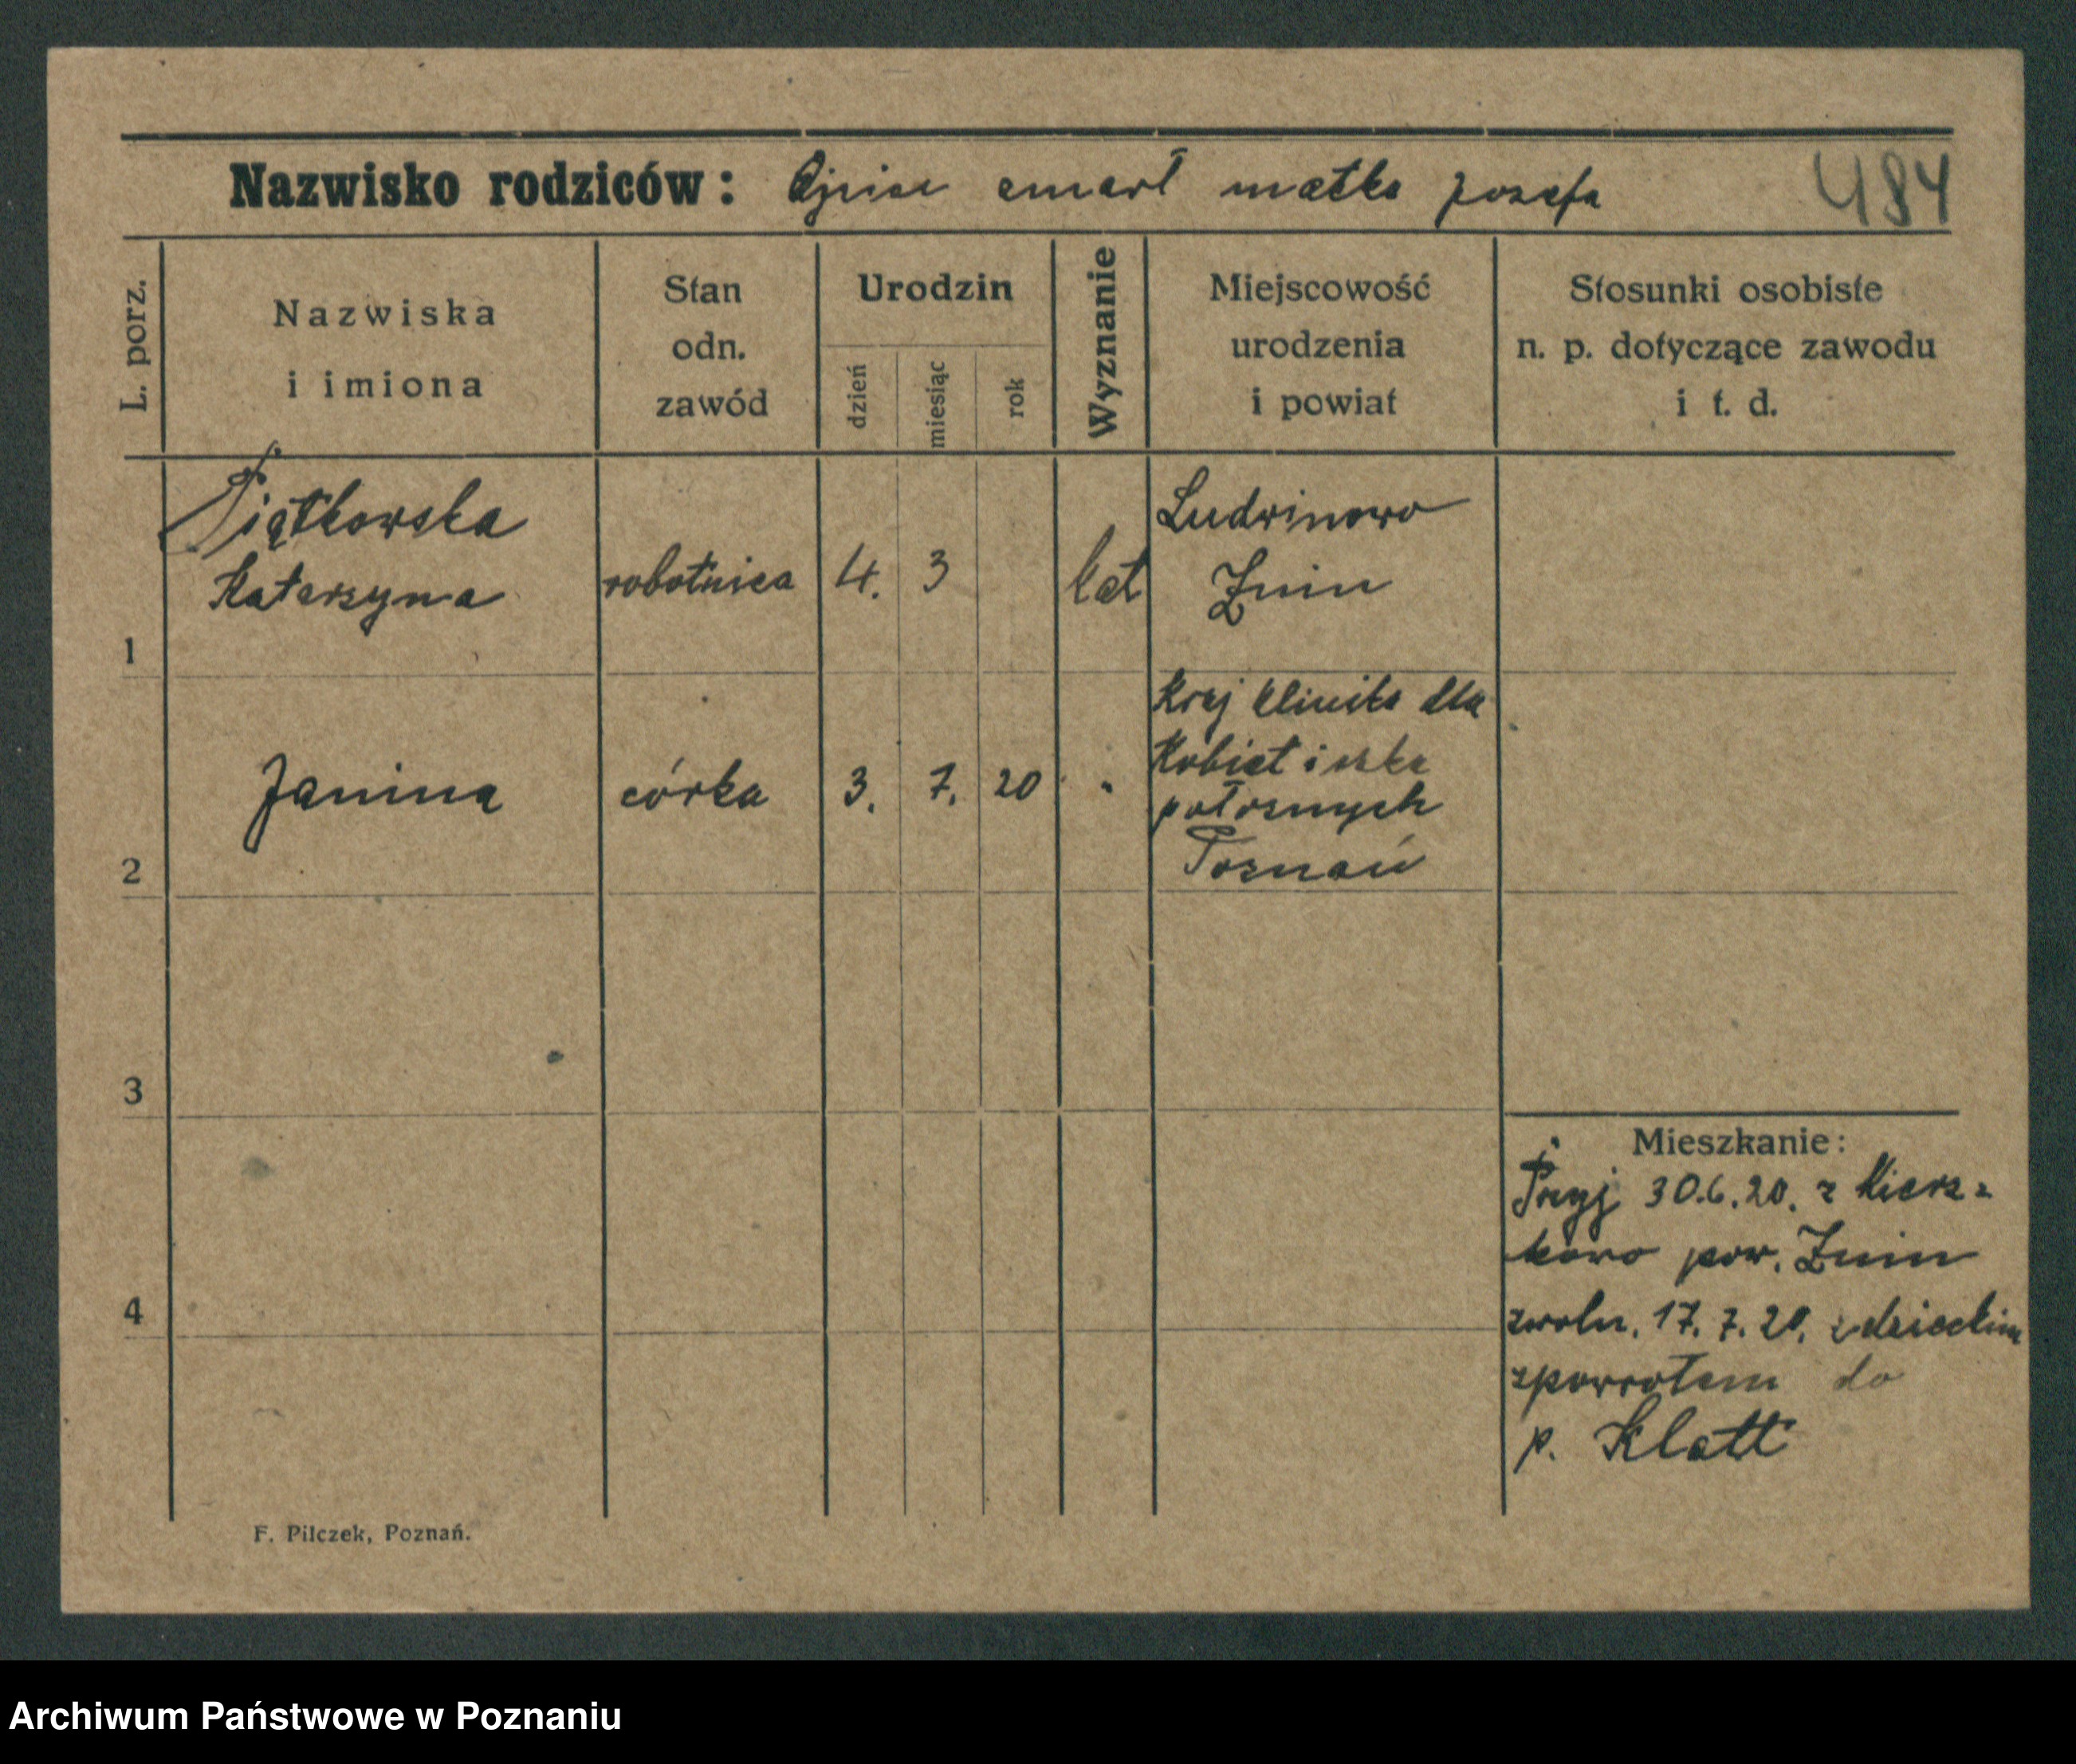 Nazwisko rodziców: Ojciec zmarł matka Józefa
484
L. porz.
Nazwiska
i imiona
Stan
odn.
zawód
Urodzin
dzień
miesiąc
rok
Wyznanie
Miejscowość
urodzenia
i powiat
Stosunki osobiste
n. p. dotyczące zawodu
i t. d.
1
Piątkowska
Katarzyna
robotnica
4.
3
kat
Ludwinowo
Żnin
2
Janina
córka
3.
7.
20
"
Kraj klinika dla
Kobiet i
położnych
Poznań
3
4
Mieszkanie:
Przyj 30.6.20. z Kierz=
kowo pow. Żnin
zwoln. 17.7.20. z dzieckiem
zpowrotem do
p. Klatt
F. Pilczek, Poznań.
Archiwum Państwowe w Poznaniu